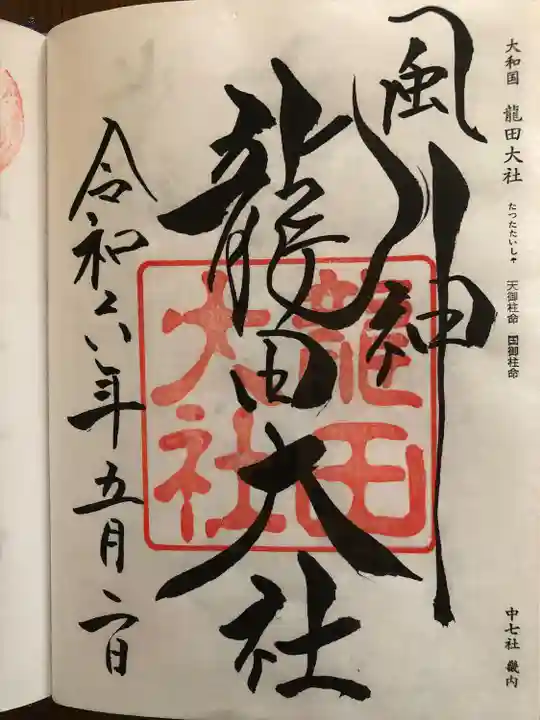 大和国 龍田大社 たつたたいしゃ 天御柱命 国御柱命
中七社 畿内
風神
龍田大社
龍田
大社
令和六年五月二日